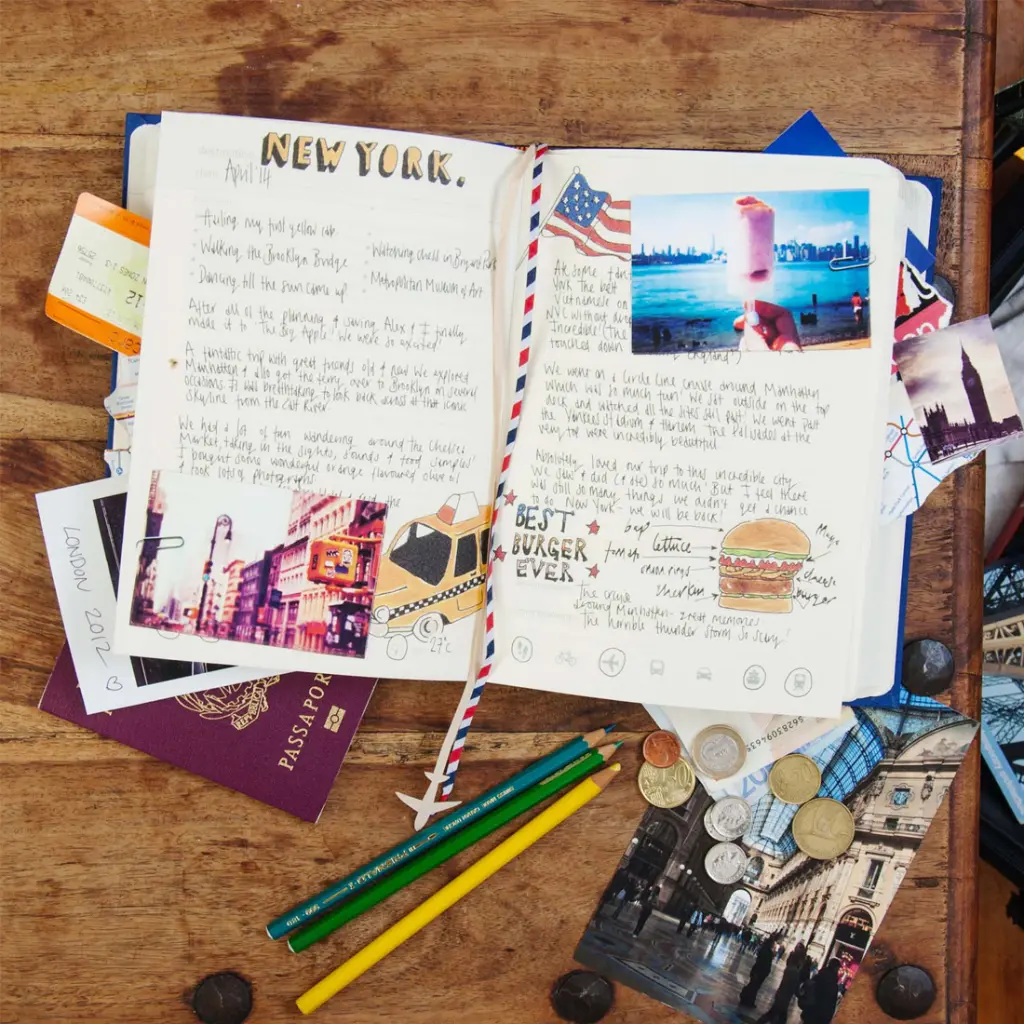 NEW YORK.
April '14
Hailing my first yellow cab
Walking the Brooklyn Bridge
Dancing till the sun came up
Watching chess in Bryant Park
Metropolitan Museum of Art
After all of the planning & saving Alex & I finally
made it to 'The Big Apple'. We were so excited!
A fantastic trip with great friends old & new. We explored
Manhattan & also got the ferry over to Brooklyn on several
occasions. It was breathtaking to look back across at that iconic
skyline from the East River.
We had a lot of fun wandering around the Chelsea
Market, taking in the sights, sounds & food samples!
I bought some wonderful orange flavoured olive oil
& took lots of photographs
27°c
York the best
Vietnamese
NYC without
Incredible! (The
touched down
England!)
We went on a Circle Line cruise around Manhattan
which was so much fun! We sat outside on the top
deck and watched all the sites sail past. We went past
the Yankees Stadium & Harlem. The Palisades at the
very top were incredibly beautiful.
Absolutely loved our trip to this incredible city.
We saw & did (& ate) so much! But I feel there
was still so many things we didn't get a chance
to do. New York - we will be back!
BEST
BURGER
EVER
lettuce
Mayo
cheese
burger
gherkin
The cruise
around Manhattan - great memories
The horrible thunder storm. So scary!
LONDON 2012
PASSPOR